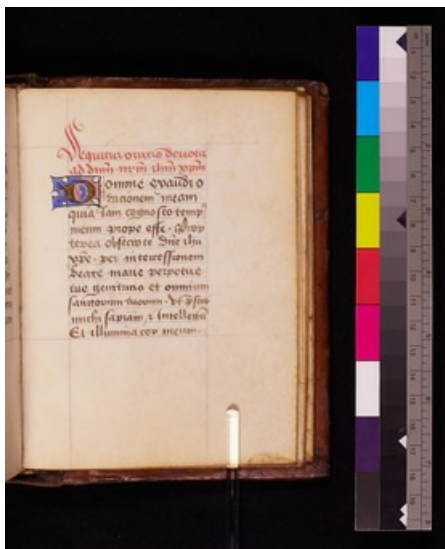 Sequitur oratio deuota
ad dnm nrm ihm xpm
Domine exaudi o
rationem meam
quia iam cognosco temp9
meum prope esse.
terea obsecro te dne ihu
xpe. per intercessionem
beate marie perpetue
tue genitricis et omnium
sanctorum tuorum.
michi sapiam z intellectu
Et illumina cor meum.